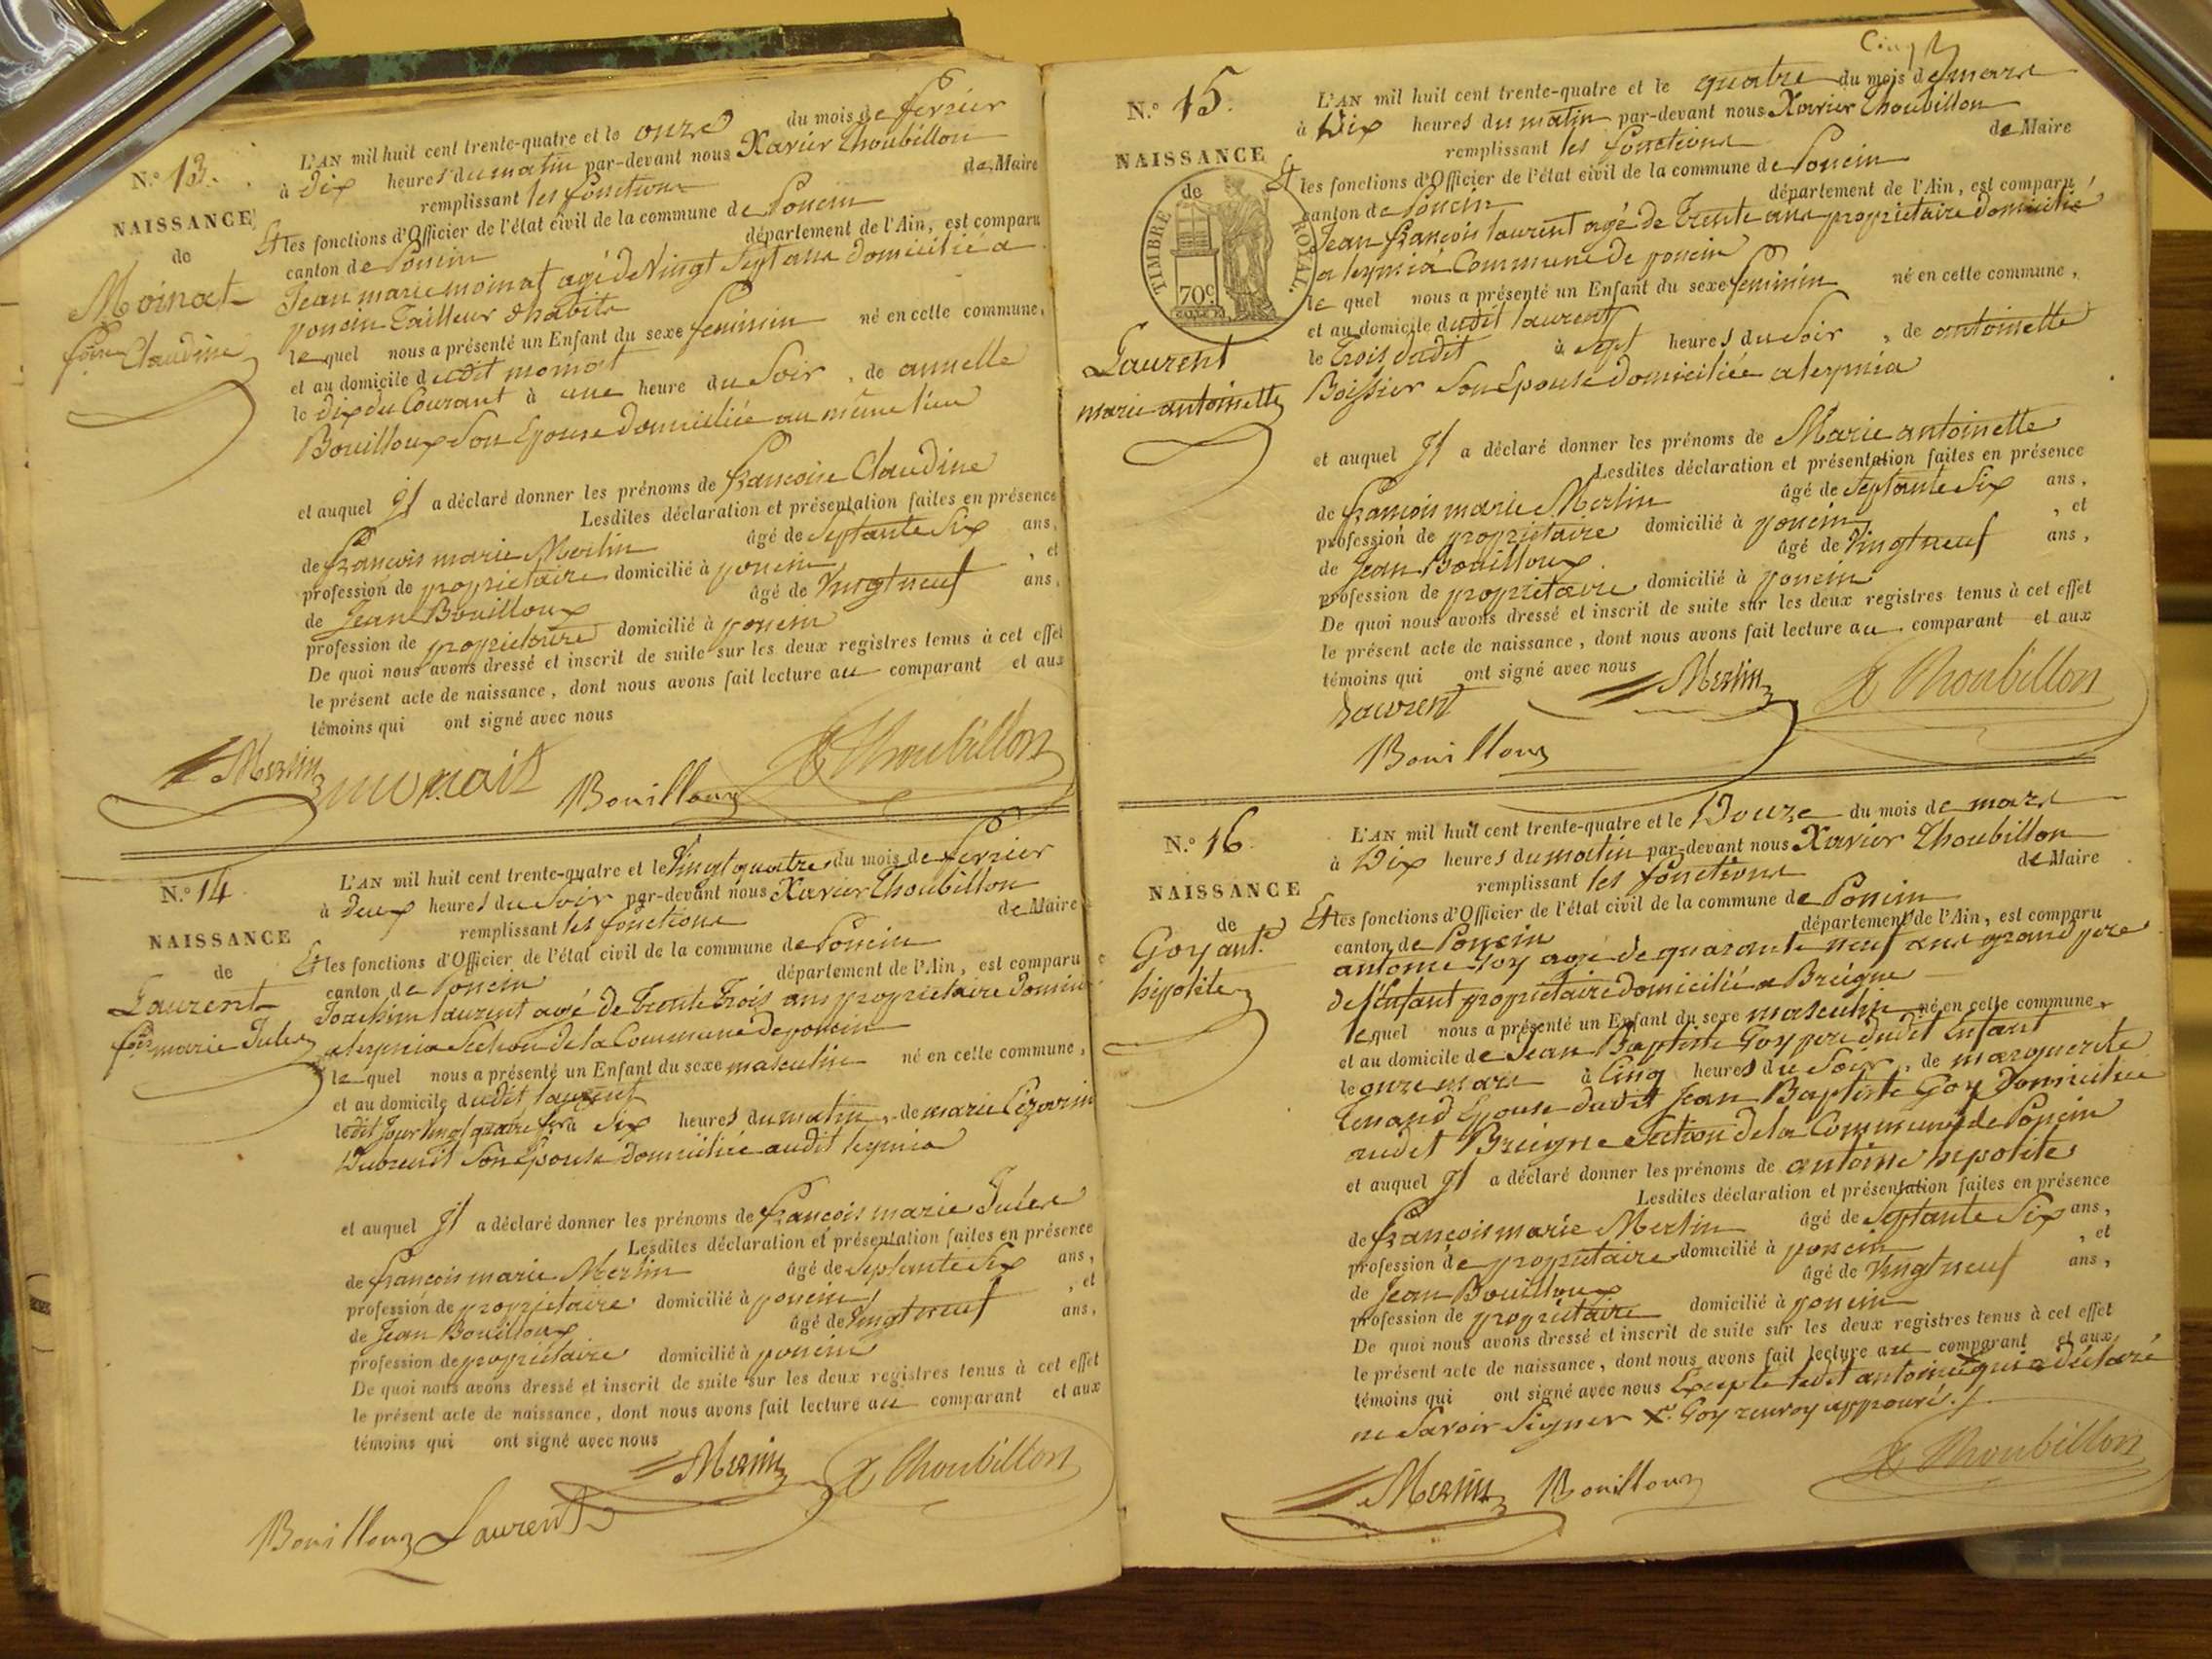 N.° 13.
NAISSANCE
de
Moinat
fçoise Claudine
L'AN mil huit cent trente-quatre et le onze du mois de fevrier
à Dix heures du matin par-devant nous Xavier Thoubillon
remplissant les fonctions de Maire
Et les fonctions d'Officier de l'état civil de la commune de Poncin
canton de Poncin département de l'Ain, est comparu
Jean marie moinat agé de Vingt Sept ans domicilié a
poncin Tailleur d'habits
le quel nous a présenté un Enfant du sexe feminin né en cette commune,
et au domicile dudit moinat
le dix du Courant à une heure du Soir, de annette
Bouilloux Son Epouse domiciliée au même lieu
et auquel Il a déclaré donner les prénoms de françoise Claudine
Lesdites déclaration et présentation faites en présence
de françois marie Merlin âgé de Septante Six ans,
profession de propriétaire domicilié à poncin, et
de Jean Bouilloux âgé de Vingt neuf ans,
profession de propriétaire domicilié à poncin
De quoi nous avons dressé et inscrit de suite sur les deux registres tenus à cet effet
le présent acte de naissance, dont nous avons fait lecture au comparant et aux
témoins qui ont signé avec nous
Merlin moinait Bouilloux X Thoubillon
N.° 14
NAISSANCE
de
Laurent
fçois marie Jules
L'AN mil huit cent trente-quatre et le Vingt quatre du mois de fevrier
à deux heures du Soir par-devant nous Xavier Thoubillon
remplissant les fonctions de Maire
Et les fonctions d'Officier de l'état civil de la commune de Poncin
canton de Poncin département de l'Ain, est comparu
Joachim laurent agé de Trente Trois ans propriétaire domicilié
a leymia Section de la Commune de poncin
le quel nous a présenté un Enfant du sexe masculin né en cette commune,
et au domicile dudit laurent
ledit jour Vingt quatre à Six heures du matin, de marie Cézarine
Dubreuil Son Epouse domiciliée audit leymia
et auquel Il a déclaré donner les prénoms de françois marie Jules
Lesdites déclaration et présentation faites en présence
de françois marie Merlin âgé de Septante Six ans,
profession de propriétaire domicilié à poncin, et
de Jean Bouilloux âgé de Vingt neuf ans,
profession de propriétaire domicilié à poncin
De quoi nous avons dressé et inscrit de suite sur les deux registres tenus à cet effet
le présent acte de naissance, dont nous avons fait lecture au comparant et aux
témoins qui ont signé avec nous
Merlin X Thoubillon
Bouilloux Laurent
Cinq
N.° 15.
NAISSANCE
de
TIMBRE ROYAL.
70c
Laurent
marie antoinette
L'AN mil huit cent trente-quatre et le quatre du mois de mars
à Dix heures du matin par-devant nous Xavier Thoubillon
remplissant les fonctions de Maire
Et les fonctions d'Officier de l'état civil de la commune de Poncin
canton de Poncin département de l'Ain, est comparu
Jean françois laurent agé de Trente ans propriétaire domicilié
a leymia Commune de poncin
le quel nous a présenté un Enfant du sexe feminin né en cette commune,
et au domicile dudit laurent
le Trois dudit à Sept heures du Soir, de antoinette
Boissier Son Epouse domiciliée a leymia
et auquel Il a déclaré donner les prénoms de Marie antoinette
Lesdites déclaration et présentation faites en présence
de françois marie Merlin âgé de Septante Six ans,
profession de propriétaire domicilié à poncin, et
de Jean Bouilloux âgé de Vingt neuf ans,
profession de propriétaire domicilié à poncin
De quoi nous avons dressé et inscrit de suite sur les deux registres tenus à cet effet
le présent acte de naissance, dont nous avons fait lecture au comparant et aux
témoins qui ont signé avec nous Merlin X Thoubillon
Laurent
Bouilloux
N.° 16
NAISSANCE
de
Goy ant.e
hipolite
L'AN mil huit cent trente-quatre et le Douze du mois de mars
à Dix heures du matin par-devant nous Xavier Thoubillon
remplissant les fonctions de Maire
Et les fonctions d'Officier de l'état civil de la commune de Poncin
canton de Poncin département de l'Ain, est comparu
antoine Goy agé de quarante neuf ans grand pere
de l'Enfant propriétaire domicilié a Breigne
le quel nous a présenté un Enfant du sexe masculin né en cette commune,
et au domicile de Jean Baptiste Goy pere dudit Enfant
le onze mars à Cinq heures du Soir, de marguerite
Tenand Epouse dudit Jean Baptiste Goy domiciliée
audit Breigne Section de la Commune de Poncin
et auquel Il a déclaré donner les prénoms de antoine hipolite
Lesdites déclaration et présentation faites en présence
de françois marie Merlin âgé de Septante Six ans,
profession de propriétaire domicilié à poncin, et
de Jean Bouilloux âgé de Vingt neuf ans,
profession de propriétaire domicilié à poncin
De quoi nous avons dressé et inscrit de suite sur les deux registres tenus à cet effet
le présent acte de naissance, dont nous avons fait lecture au comparant et aux
témoins qui ont signé avec nous Excepté ledit antoine qui a déclaré
ne Savoir Signer X Goy renvoy approuvé
Merlin Bouilloux X Thoubillon